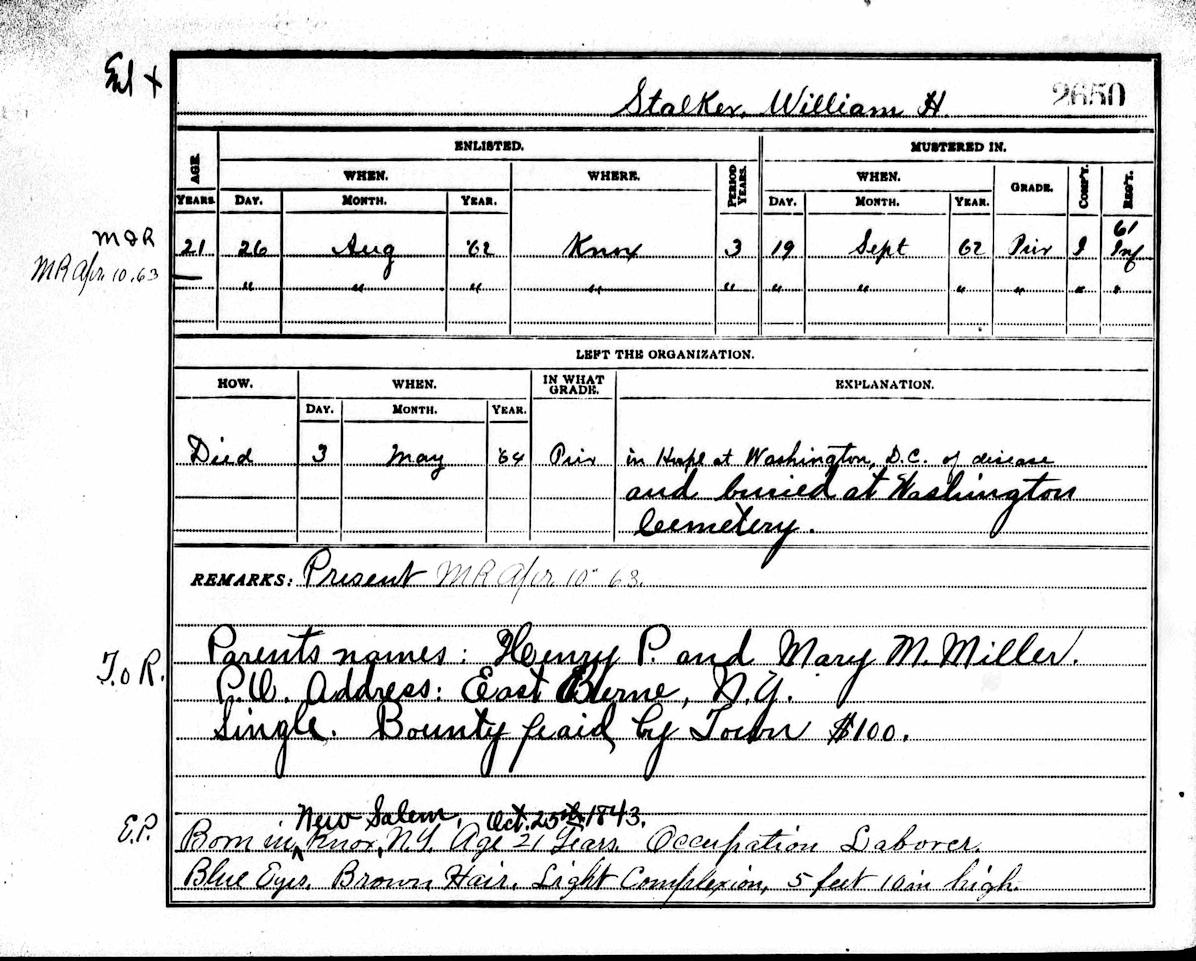 En +
Stalker, William H. 2650
ENLISTED. MUSTERED IN.
AGE. WHEN. WHERE. PERIOD YEARS. WHEN. GRADE. COMP'Y. REG'T.
YEARS. DAY. MONTH. YEAR. DAY. MONTH. YEAR.
M & R 21 26 Aug '62 Knox 3 19 Sept 62 Priv I 61 Inf
MR Apr 10.63 " " " " " " " " " " "
LEFT THE ORGANIZATION.
HOW. WHEN. IN WHAT GRADE. EXPLANATION.
DAY. MONTH. YEAR.
Died 3 May '64 Priv in Hospl at Washington, D.C. of disease
and buried at Washington
Cemetery.
REMARKS: Present MR Apr 10" 63.
Parents names: Henry P. and Mary M. Miller.
T. o R. P.O. Address: East Berne, N.Y.
Single. Bounty paid by Town $100.
New Salem, Oct. 25th 1843.
E.P. Born in Knox, N.Y. Age 21 Years. Occupation Laborer.
Blue Eyes. Brown Hair. Light Complexion, 5 feet 10 in high.